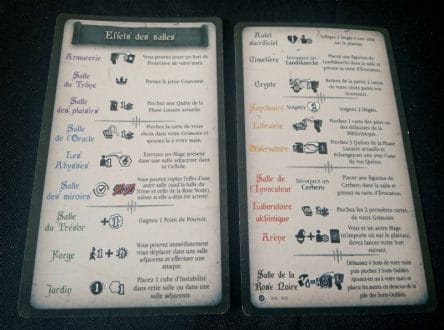 Effets des salles
Armurerie
Vous pouvez jouer un Sort de
Protection de votre main.
Salle
du Trône
Prenez le jeton Couronne.
Salle
des plaisirs
Piochez une Quête de la
Phase Lunaire actuelle.
Salle
de l'Oracle
Piochez la carte de votre
choix dans votre Grimoire et
ajoutez-la à votre main
Les
Abysses
Envoyez un Mage présent
dans une salle adjacente dans
sa Cellule.
Salle
des miroirs
Vous pouvez copier l'effet d'une
autre salle (sauf la Salle du
Trône et celle de la Rose Noire),
même si elle a déjà été activée.
Salle
du Trésor
+1
Gagnez 1 Point de Pouvoir.
Forge
Vous pouvez immédiatement
vous déplacer dans une salle
adjacente et effectuer une
attaque.
Jardin
Placez 1 cube d'Instabilité
dans cette salle ou dans une
salle adjacente.
Autel
sacrificiel
Infligez 1 Dégât à une cible
sur le plateau.
Cimetière
Invoquez un
Landsknecht
Placez une figurine de
Landsknecht dans la salle et
prenez sa carte d'Évocation.
Crypte
de la partie 2 cartes
de votre choix parmi vos
Souvenirs.
Sanctuaire
Soignez
Soignez 2 Dégâts.
Librairie
Piochez 1 carte des piles ou
des défausses de la
Bibliothèque.
Observatoire
Piochez 3 Quêtes de la Phase
Lunaire actuelle et
échangez-en une avec l'une
de vos Quêtes.
Salle de
l'Invocateur
Invoquez un
Cerbère
Placez une figurine de
Cerbère dans la salle et
prenez sa carte d'Évocation.
Laboratoire
alchimique
Piochez les 2 premières cartes
de votre Grimoire.
Arène
Vous et un autre Mage
(n'importe où sur le plateau)
devez lancer votre Sort
suivant.
Salle de la
Rose Noire
Défaussez 4 Sorts de votre main
puis piochez 3 Sorts Oubliés.
Ajoutez-en un à votre main et
placez les autres en dessous de la
pile des Sorts Oubliés.